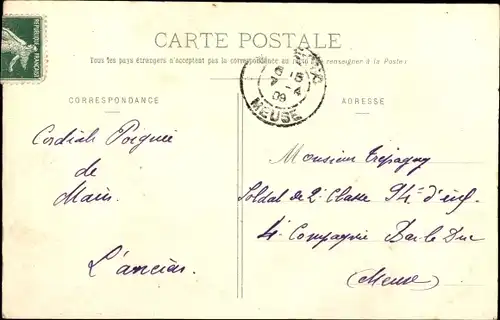 RÉPUBLIQUE FRANÇAISE
CARTE POSTALE
Tous les pays étrangers n'acceptent pas la correspondance au recto (se renseigner à la Poste)
6 15
7 - 4
09
MEUSE
CORRESPONDANCE
ADRESSE
Cordiale Poignée
de
Main
L'ancien
Monsieur Trépagny
Soldat de 2e Classe 94e d'inf.
4e Compagnie Bar le Duc
(Meuse)